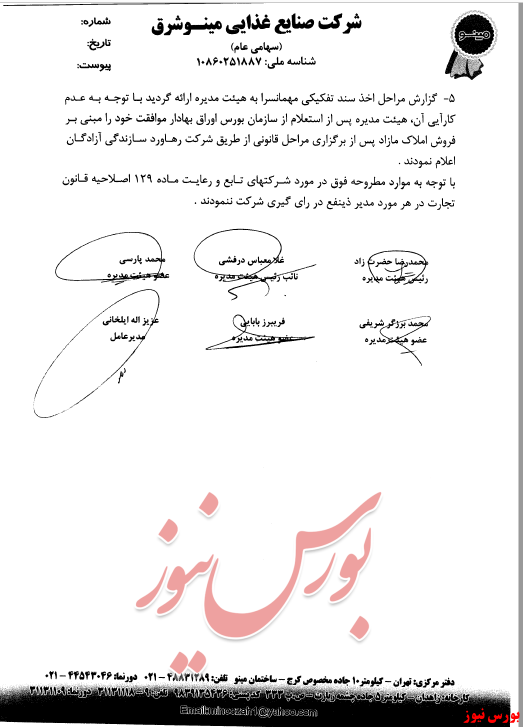 شرکت صنایع غذایی مینو شرق
(سهامی عام)
شناسه ملی: ۱۰۸۶۰۲۵۱۸۸۷
شماره:
تاریخ:
پیوست:
مینو
۵- گزارش مراحل اخذ سند تفکیکی مهمانسرا به هیئت مدیره ارائه گردید با توجه به عدم
کارآیی آن، هیئت مدیره پس از استعلام از سازمان بورس اوراق بهادار موافقت خود را مبنی بر
فروش املاک مازاد پس از برگزاری مراحل قانونی از طریق شرکت رهاورد سازندگی آزادگان
اعلام نمودند .
با توجه به موارد مطروحه فوق در مورد شرکتهای تابع و رعایت ماده ۱۲۹ اصلاحیه قانون
تجارت در هر مورد مدیر ذینفع در رای گیری شرکت ننمودند .
محمدرضا حضرت زاد
رئیس هیئت مدیره
غلامعباس درفشی
نائب رئیس هیئت مدیره
محمد پارسی
عضو هیئت مدیره
محمد برزگر شریفی
عضو هیئت مدیره
فریبرز بابایی
عضو هیئت مدیره
عزیز اله ایلخانی
مدیرعامل
بورس نیوز
دفتر مرکزی: تهران - کیلومتر ۱۰ جاده مخصوص کرج - ساختمان مینو تلفن: ۴۸۸۳۱۲۸۹ - ۰۲۱ دورنما: ۴۴۵۴۳۰۴۶ - ۰۲۱
کارخانه: زاهدان - کیلومتر ۵ جاده چشمه زیارت - ص.پ
بورس نیوز